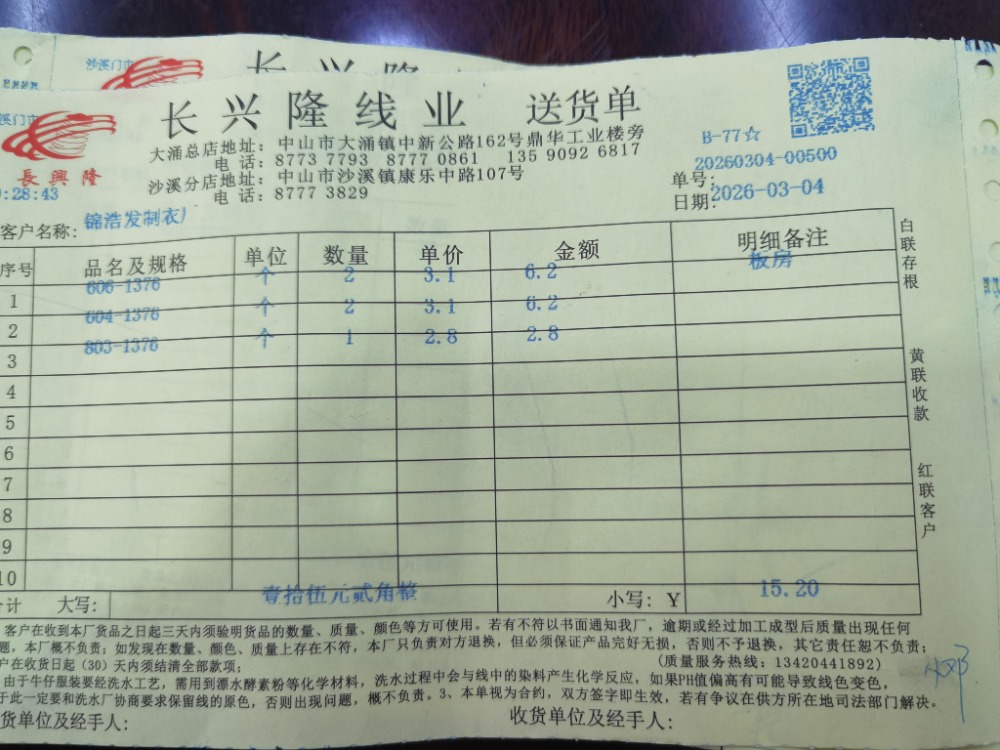 沙溪门市
长兴隆
长兴隆线业 送货单
長興隆
大涌总店地址: 中山市大涌镇中新公路162号鼎华工业楼旁
电话: 8773 7793 8777 0861 135 9092 6817
沙溪分店地址: 中山市沙溪镇康乐中路107号
电话: 8777 3829
B-77☆
单号: 20260304-00500
日期: 2026-03-04
:28:43
客户名称: 锦浩发制衣厂
序号 品名及规格 单位 数量 单价 金额 明细备注
1 606-1376 个 2 3.1 6.2 板房
2 604-1376 个 2 3.1 6.2
3 803-1376 个 1 2.8 2.8
4
5
6
7
8
9
10
合计 大写: 壹拾伍元贰角整 小写: ¥ 15.20
白联存根
黄联收款
红联客户
客户在收到本厂货品之日起三天内须验明货品的数量、质量、颜色等方可使用。若有不符以书面通知我厂，逾期或经过加工成型后质量出现任何
题，本厂概不负责；如发现在数量、颜色、质量上存在不符，本厂只负责对方退换，但必须保证产品完好无损，否则不予退换，其它责任恕不负责；
户在收货日起（30）天内须结清全部款项； (质量服务热线: 13420441892)
由于牛仔服装要经洗水工艺，需用到漂水酵素粉等化学材料，洗水过程中会与线中的染料产生化学反应，如果PH值偏高有可能导致线色变色，
于此一定要和洗水厂协商要求保留线的原色，否则出现问题，概不负责。3、本单视为合约，双方签字即生效，若有争议在供方所在地司法部门解决。
货单位及经手人: 收货单位及经手人: